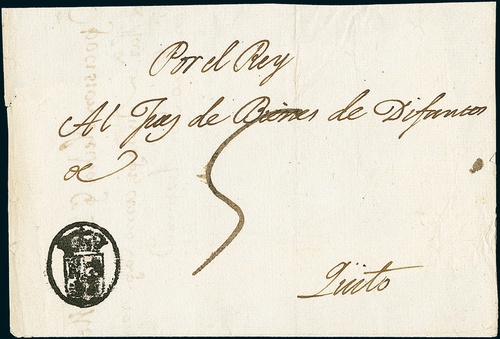 Por el Rey
Al Juez de Bienes de Difuntos
de
5
Quito